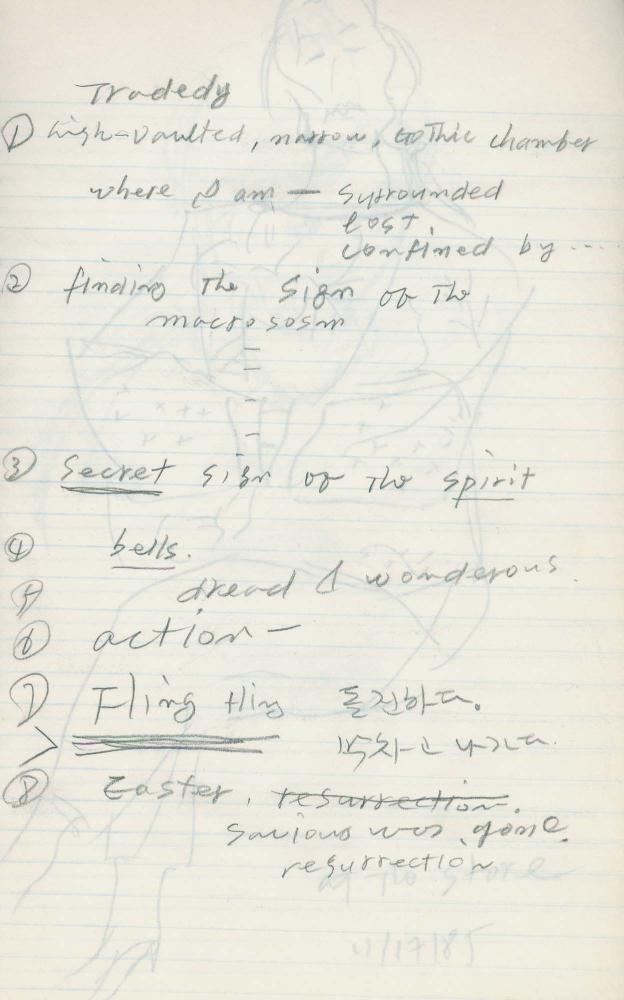 Tradedy
① high-vaulted, narrow, Gothic chamber
where I am — surrounded
lost,
confined by ....
② finding The Sign of The
macrososm
③ Secret sign of The spirit
④ bells.
⑤ dread & wonderous.
⑥ action —
⑦ Fling 돌진하다.
박차고 나가다.
⑧ Easter, resurrection.
savious was gone.
resurrection
at The store
11/17/85